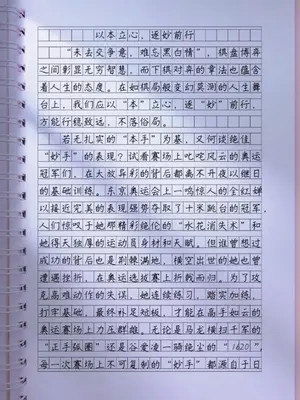 以本立心，逐妙前行
“未去交争意，难忘黑白情”，棋盘博弈
之间彰显无穷智慧，而下棋对弈的章法也蕴含
着人生的态度。在如棋局般变幻莫测的人生舞
台上，我们应以“本”立心，逐“妙”前行，
方能行稳致远，不落俗局。
若无扎实的“本手”为基，又何谈绝佳
“妙手”的表现？试看赛场上叱咤风云的奥运
冠军们，在大放异彩的背后都离不开夜以继日
的基础训练。东京奥运会上一鸣惊人的全红婵
以接近完美的表现强势夺取了十米跳台的冠军，
人们惊叹于她那精彩绝伦的“水花消失术”和
她得天独厚的运动员身材和天赋，但谁曾想过
成功的背后也是荆棘满地，横空出世的她也曾
遭遇挫折，在奥运选拔赛上折戟而归。为了攻
克高难动作的失误，她连续练习，踏实加练，
打牢基础，最终补足短板，才能在高手如云的
奥运赛场上力压群雄。无论是马龙横扫千军的
“正手弧圈”还是谷爱凌一骑绝尘的“1620”，
每一次赛场上不可复制的“妙手”都源自于日